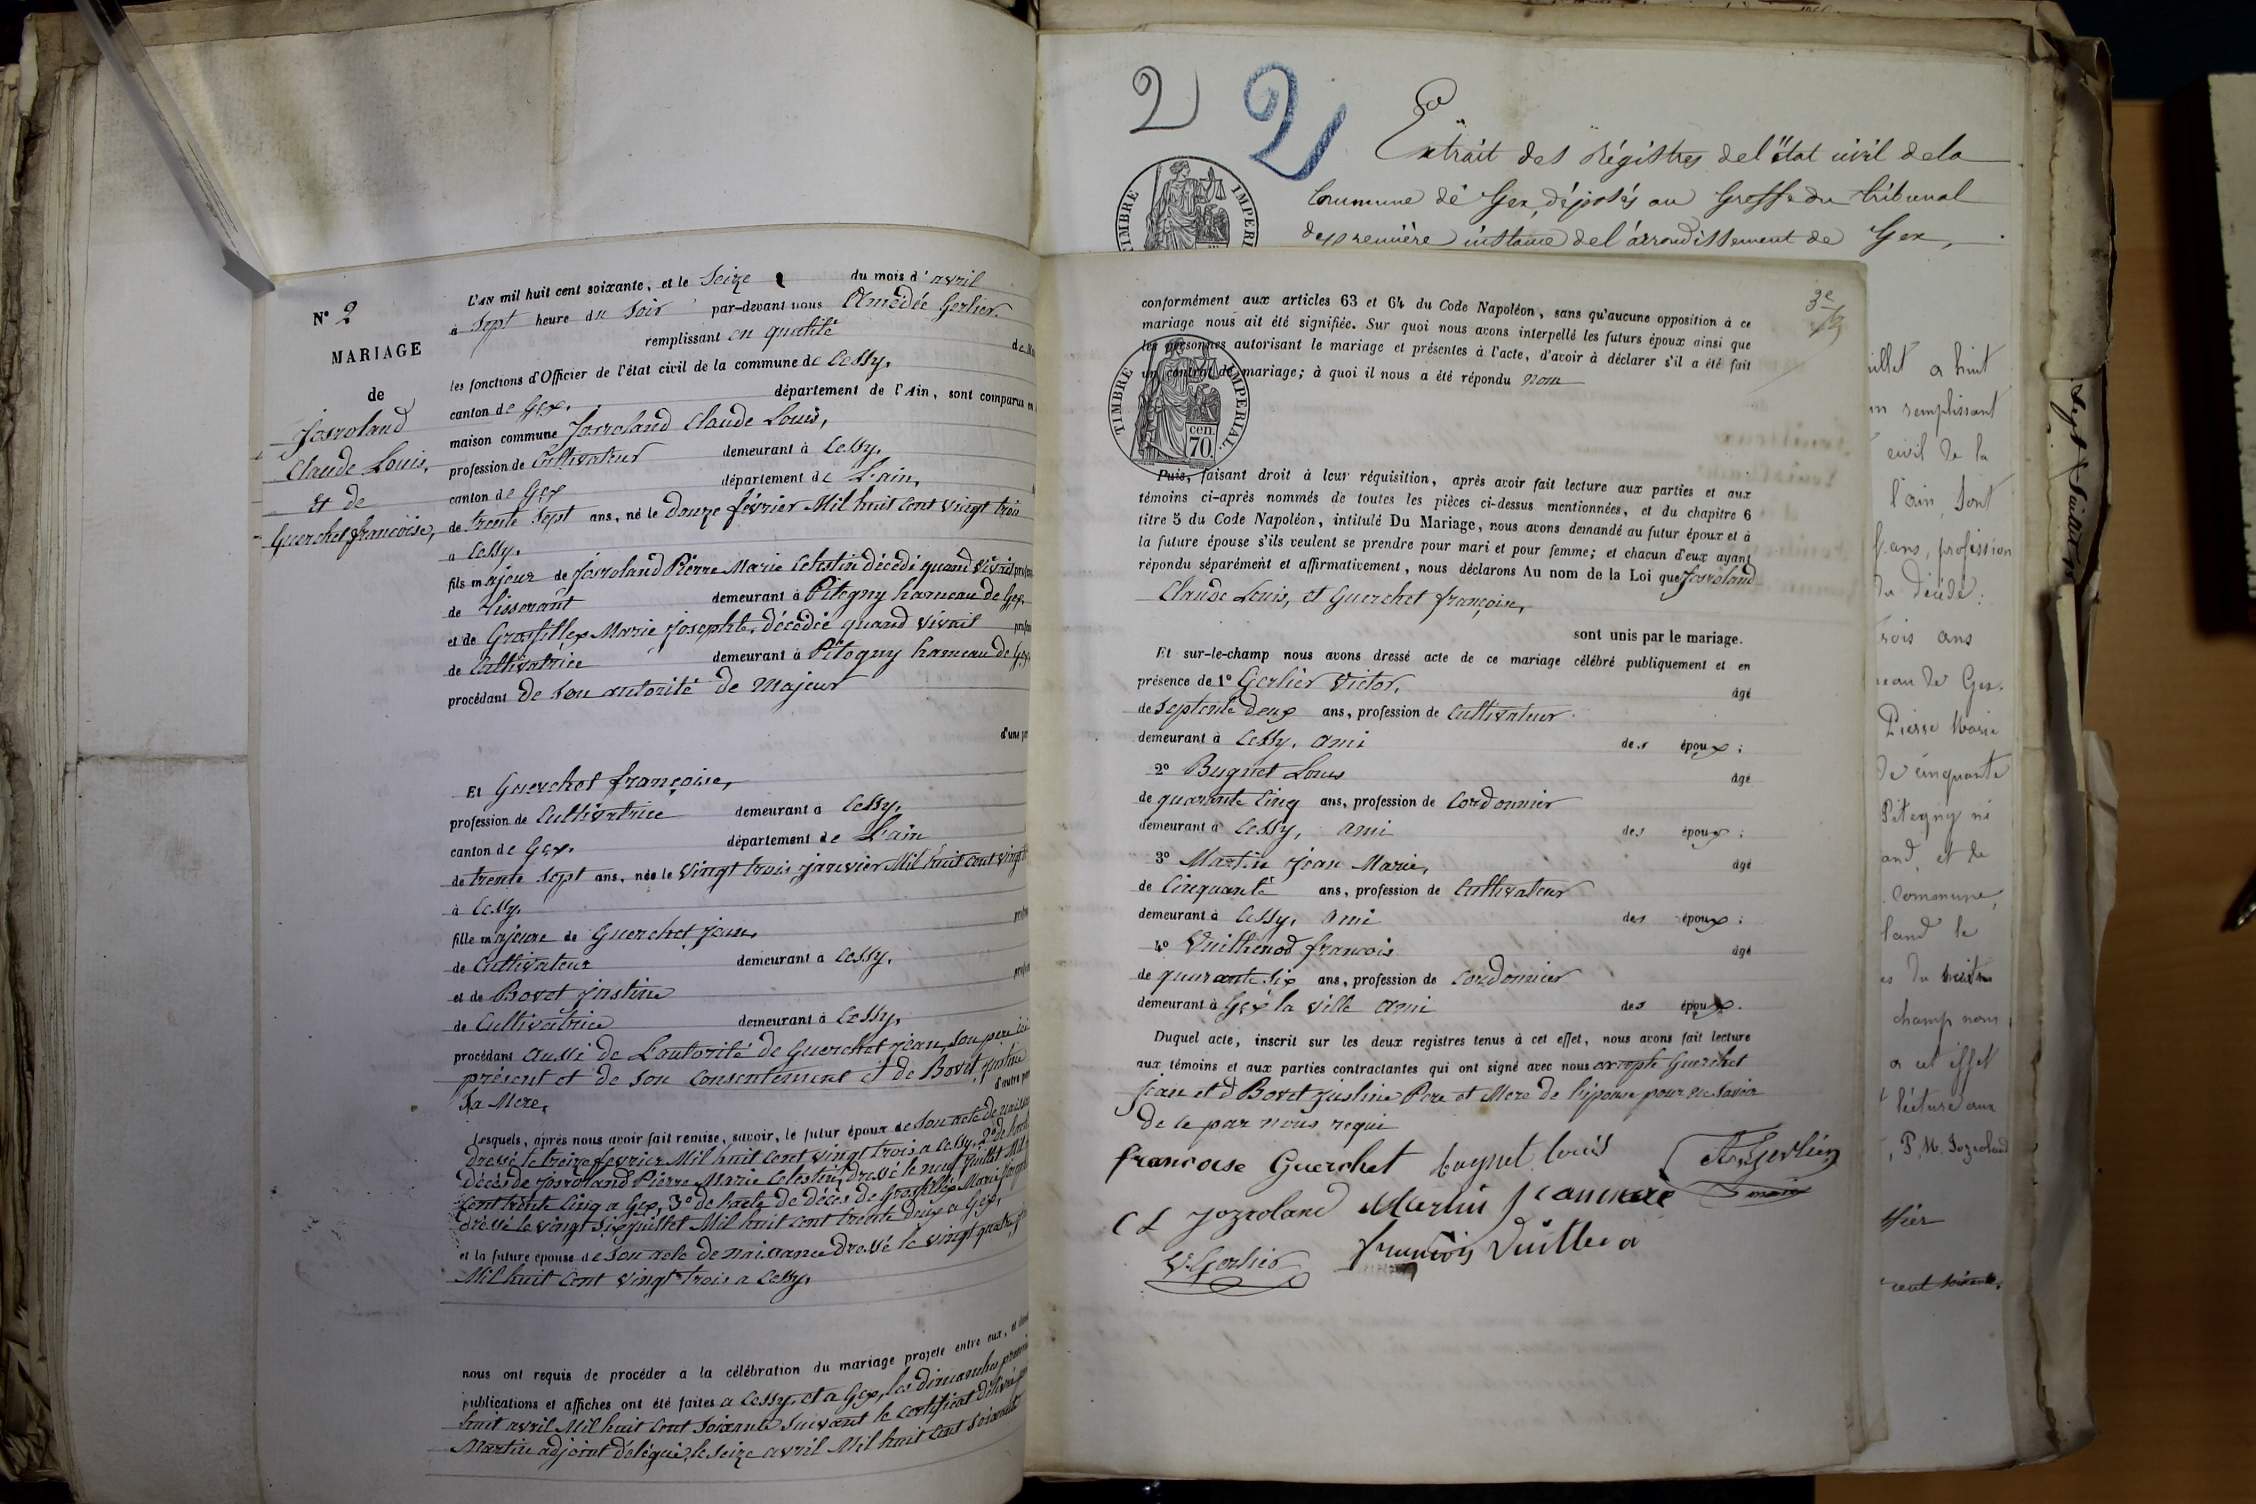 N° 2
MARIAGE
de
Josroland
Claude Louis,
et de
Guerchet françoise,
L'AN mil huit cent soixante, et le Seize du mois d'avril
à Sept heure du Soir par-devant nous Amédée Gerlier
remplissant en qualité de
les fonctions d'Officier de l'état civil de la commune de Cessy,
canton de Gex. département de l'Ain, sont comparus en
maison commune Josroland Claude Louis,
profession de Cultivateur demeurant à Cessy,
canton de Gex département de L'ain,
de trente Sept ans, né le douze février Mil huit Cent vingt trois
a Cessy.
fils majeur de Josroland Pierre Marie Celestin décédé quand vivait
de Tisserant demeurant à Pitegny hameau de Gex,
et de Grosfillex Marie Josephte, décédée quand vivait
de Cultivatrice demeurant à Pitegny hameau de Gex,
procédant de Son autorité de Majeur
d'une
Et Guerchet françoise,
profession de Cultivatrice demeurant à Cessy,
canton de Gex. département de L'ain
de trente Sept ans, née le Vingt trois janvier Mil huit Cent vingt
à Cessy.
fille majeure de Guerchet Jean,
de Cultivateur demeurant à Cessy,
et de Bovet Justine
de Cultivatrice demeurant à Cessy,
procédant aussi de L'autorité de Guerchet Jean, Son pere ici
présent et de Son Consentement et de Bovet Justine
d'autre
Sa Mere,
Lesquels, après nous avoir fait remise, savoir, le futur époux de Son acte de
dressé le treize fevrier Mil huit Cent vingt trois a Cessy, 2° de
décès de Josroland Pierre Marie Celestin, dressé le neuf Juillet Mil
Cent trente Cinq a Gex, 3° de l'acte de décès de Grosfillex Marie
dressé le vingt Six Juillet Mil huit Cent trente deux a Gex,
et la future épouse de Son acte de naissance dressé le vingt quatre
Mil huit Cent vingt trois a Cessy,
nous ont requis de procéder à la célébration du mariage projeté entre eux, et
publications et affiches ont été faites a Cessy et a Gex, les dimanches
huit avril Mil huit Cent Soixante Suivant le Certificat délivré
Martin adjoint délégué, le Seize avril Mil huit Cent Soixante
2 2
Extrait des Régistres de l'état civil de la
Commune de Gex, déposés au Greffe du tribunal
de première instance de l'arrondissement de Gex,
TIMBRE IMPERI
3e
conformément aux articles 63 et 64 du Code Napoléon, sans qu'aucune opposition à ce
mariage nous ait été signifiée. Sur quoi nous avons interpellé les futurs époux ainsi que
les personnes autorisant le mariage et présentes à l'acte, d'avoir à déclarer s'il a été fait
un contrat de mariage; à quoi il nous a été répondu Non
TIMBRE IMPERIAL.
cen.
70.
Puis, faisant droit à leur réquisition, après avoir fait lecture aux parties et aux
témoins ci-après nommés de toutes les pièces ci-dessus mentionnées, et du chapitre 6
titre 5 du Code Napoléon, intitulé Du Mariage, nous avons demandé au futur époux et à
la future épouse s'ils veulent se prendre pour mari et pour femme; et chacun d'eux ayant
répondu séparément et affirmativement, nous déclarons Au nom de la Loi que Josroland
Claude Louis, et Guerchet françoise,
sont unis par le mariage.
Et sur-le-champ nous avons dressé acte de ce mariage célébré publiquement et en
présence de 1° Gerlier Victor, âgé
de Septente deux ans, profession de Cultivateur
demeurant à Cessy, ami des époux ;
2° Bugnet Louis âgé
de quarante Cinq ans, profession de Cordonnier
demeurant à Cessy, ami des époux ;
3° Martin Jean Marie, âgé
de Cinquante ans, profession de Cultivateur
demeurant à Cessy, ami des époux ;
4° Vuillienod francois âgé
de quarante Six ans, profession de Cordonnier
demeurant à Gex la ville ami des époux.
Duquel acte, inscrit sur les deux registres tenus à cet effet, nous avons fait lecture
aux témoins et aux parties contractantes qui ont signé avec nous excepté Guerchet
Jean et d Bovet Justine Pere et Mere de l'épouse pour ne Savoir
de ce par nous requi
francoise Guerchet bugnet louis A. Gerlier
maire
C L Jozroland Martin
V. Gerlier francois
juillet a huit
remplissant
civil de la
l'ain, sont
ans, profession
du décédé:
trois ans
hameau de Gex.
Pierre Marie
de cinquante
Pitegny né
and, et de
Commune,
land le
champ nous
a cet effet
lecture aux
P. M. Jozroland